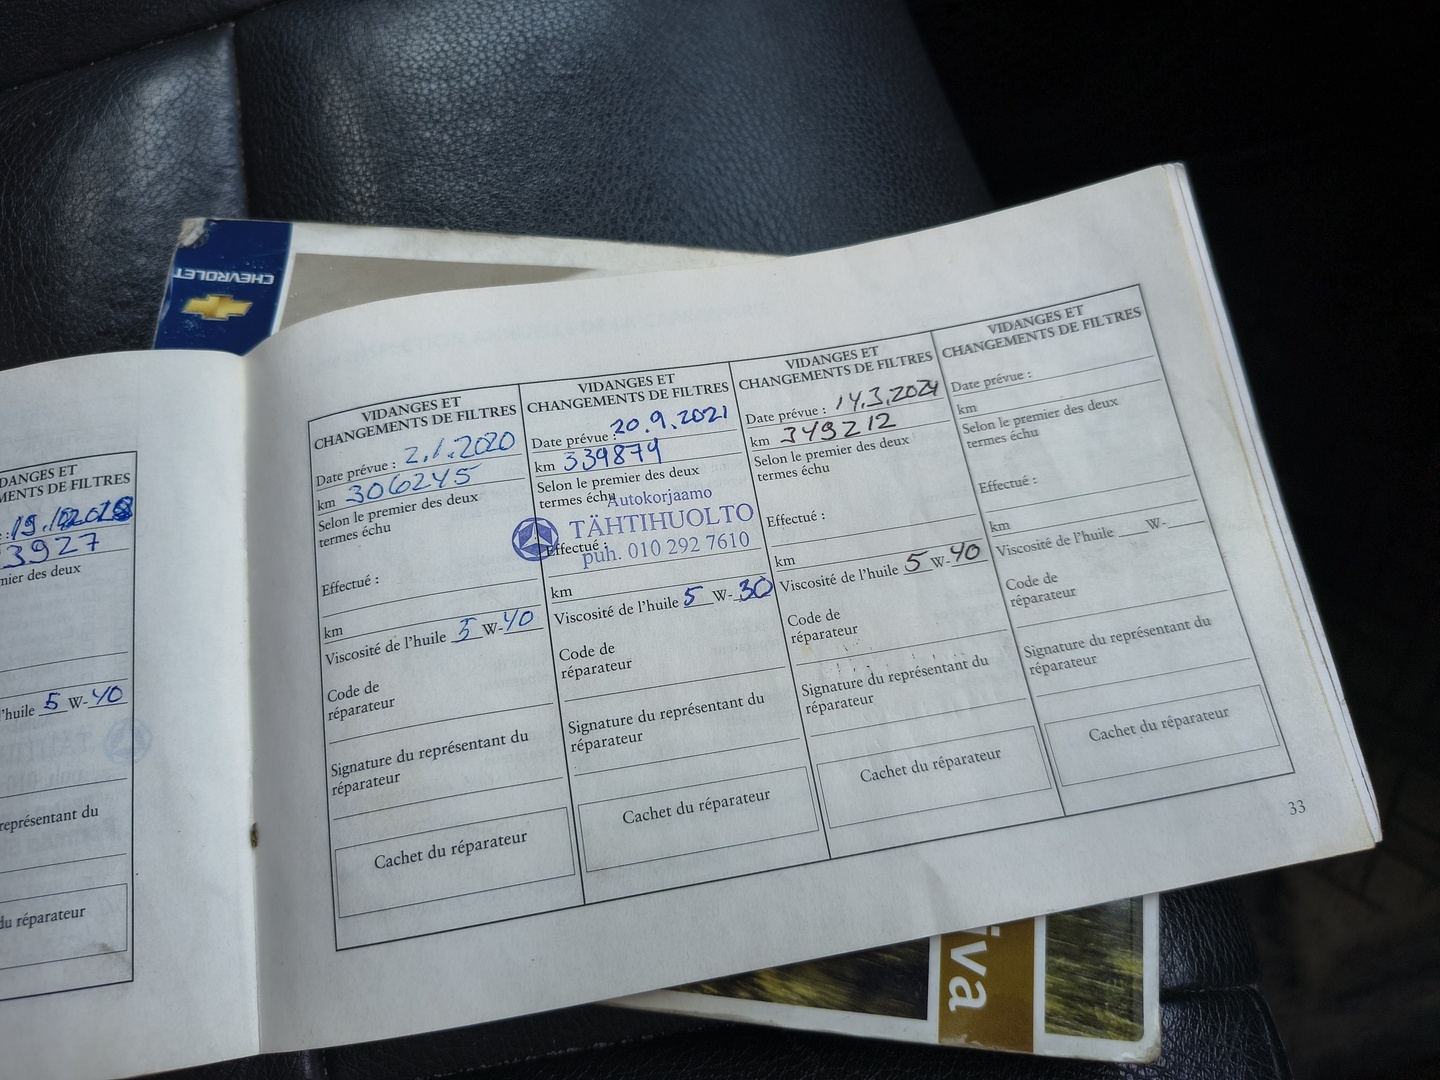 CHEVROLET
DANGES ET
MENTS DE FILTRES
3927
mier des deux
'huile 5 W-40
eprésentant du
du réparateur
VIDANGES ET
CHANGEMENTS DE FILTRES
Date prévue : 2.1.2020
km 306245
Selon le premier des deux
termes échu
Effectué :
km
Viscosité de l'huile 5 W-40
Code de
réparateur
Signature du représentant du
réparateur
Cachet du réparateur
VIDANGES ET
CHANGEMENTS DE FILTRES
Date prévue : 20.9.2021
km 339879
Selon le premier des deux
termes échu
Autokorjaamo
TÄHTIHUOLTO
Effectué :
puh. 010 292 7610
km
Viscosité de l'huile 5 W-30
Code de
réparateur
Signature du représentant du
réparateur
Cachet du réparateur
VIDANGES ET
CHANGEMENTS DE FILTRES
Date prévue : 14.3.2024
km 349212
Selon le premier des deux
termes échu
Effectué :
km
Viscosité de l'huile 5 W-40
Code de
réparateur
Signature du représentant du
réparateur
Cachet du réparateur
VIDANGES ET
CHANGEMENTS DE FILTRES
Date prévue :
km
Selon le premier des deux
termes échu
Effectué :
km
Viscosité de l'huile W-
Code de
réparateur
Signature du représentant du
réparateur
Cachet du réparateur
33
iva